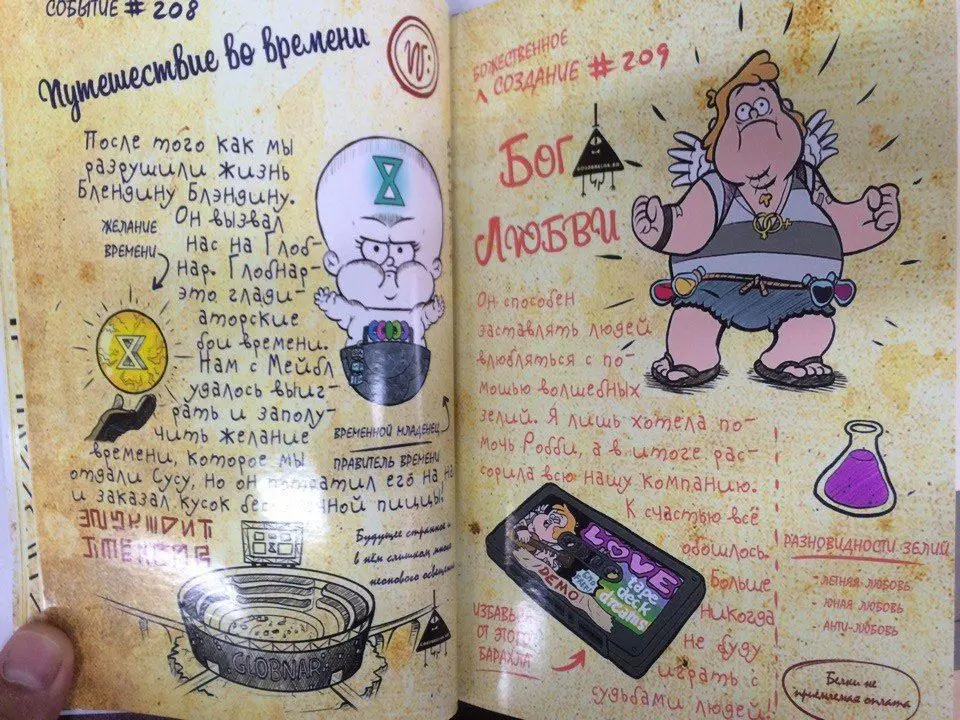 СОБЫТИЕ #208
Путешествие во времени
После того как мы
разрушили жизнь
Блендину Блэндину.
Он вызвал
нас на Глоб-
нар. Глобнар-
это глади-
аторские
бои времени.
Нам с Мейбл
удалось выиг-
рать и заполу-
чить желание
времени, которое мы
отдали Сусу, но он потратил его на
и заказал кусок бесконечной пиццы!
ЖЕЛАНИЕ
ВРЕМЕНИ
ВРЕМЕННОЙ МЛАДЕНЕЦ
ПРАВИТЕЛЬ ВРЕМЕНИ
Будущее странное
в нём слишком много
неонового освещения
GLOBNAR
БОЖЕСТВЕННОЕ
СОЗДАНИЕ #209
БОГ
ЛЮБВИ
Он способен
заставлять людей
влюбляться с по-
мощью волшебных
зелий. Я лишь хотела по-
мочь Робби, а в итоге рас-
сорила всю нашу компанию.
К счастью всё
обошлось.
Больше
никогда
не буду
играть с
судьбами людей
LOVE
tape
deck
dreams
DEMO!
ИЗБАВЬ
ОТ ЭТОГО
БАРАХЛА
РАЗНОВИДНОСТИ ЗЕЛИЙ
- ЛЕТНЯЯ ЛЮБОВЬ
- ЮНАЯ ЛЮБОВЬ
- АНТИ-ЛЮБОВЬ
Белки не
приемлемая оплата